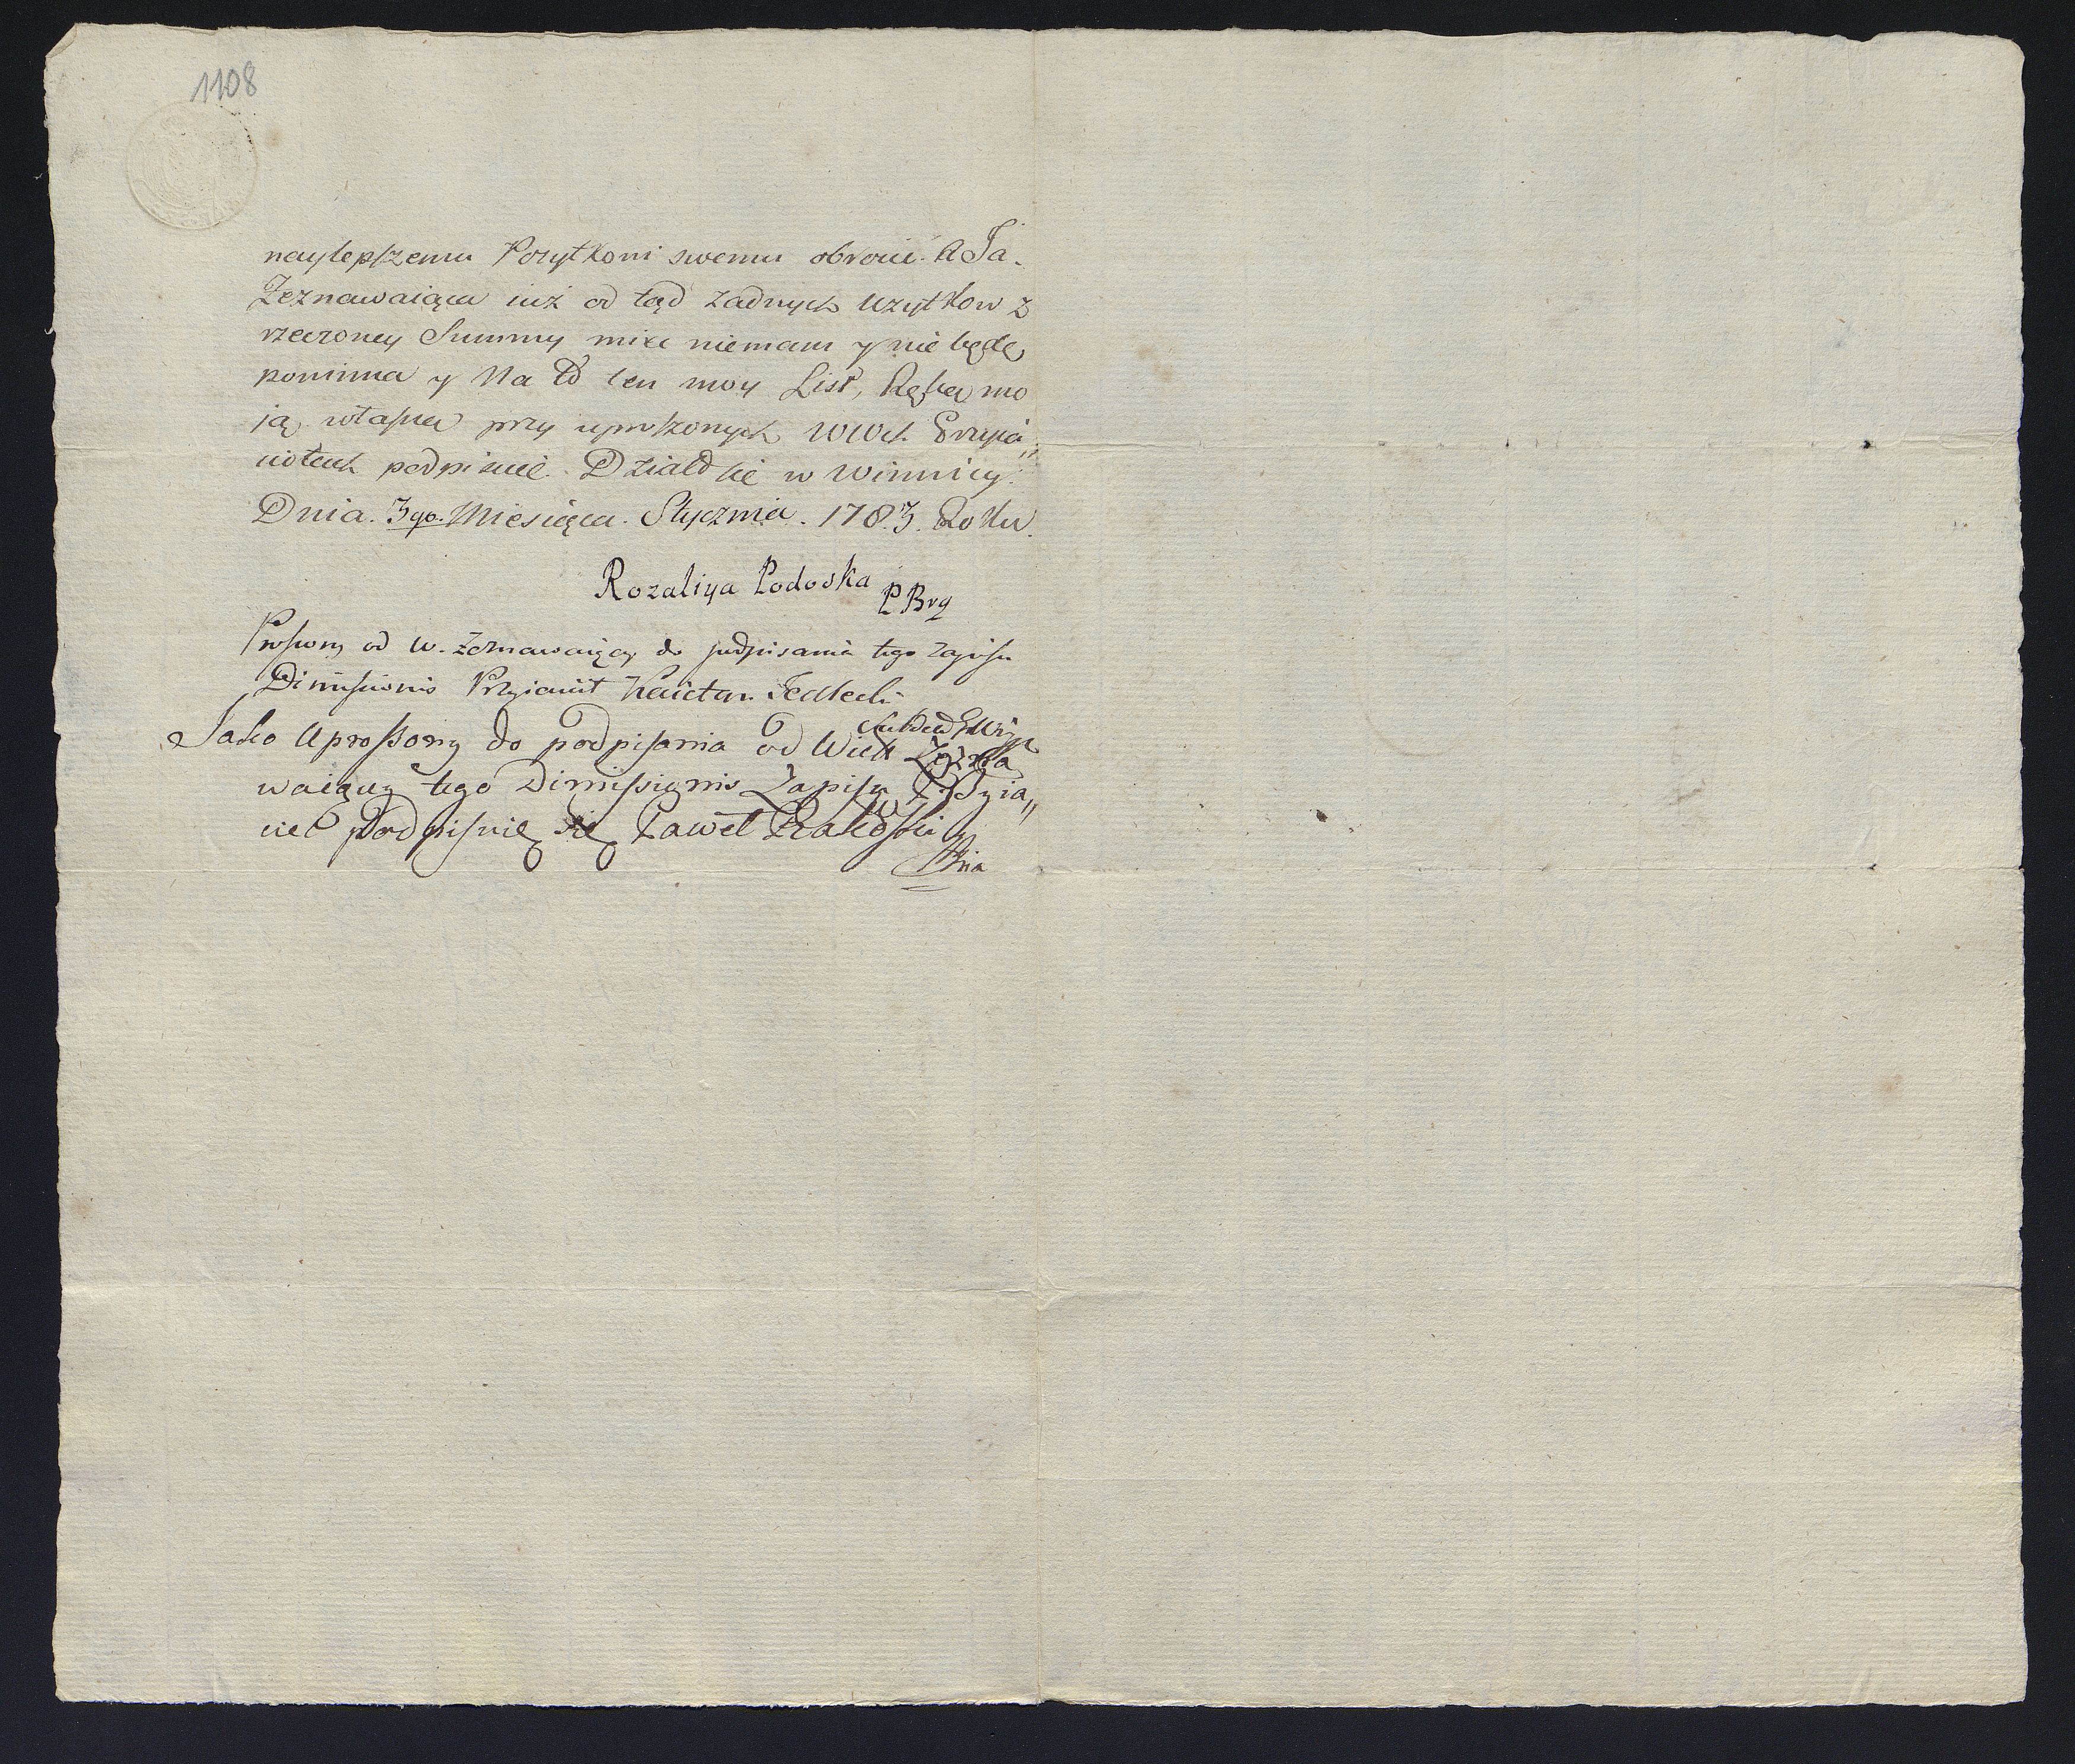 1108
naylepszemu Pożytkowi swemu obrocić. A Ja
Zeznawaiąca iuż od tąd żadnych użytkow z
rzeczoney Summy mieć niemam y nie będę
powinna y Na to ten moy List, Ręką mo
ją własną przy uproszonych WWch Przyia„
ciołach podpisuię. Działo się w Winnicy.
Dnia. 3go. Miesiąca. Stycznia. 1783. Roku.
Rozaliya Podoska
Proszony od W. Zeznawaiącey do podpisania tego Zapisu
Dimissionis Przyiaciel Kaietan Jedlecki
Jako Uproszony do podpisania od Wiel Zezna
waiącey tego Dimissionis Zapisu Przyia„
ciel Podpisuię się Paweł